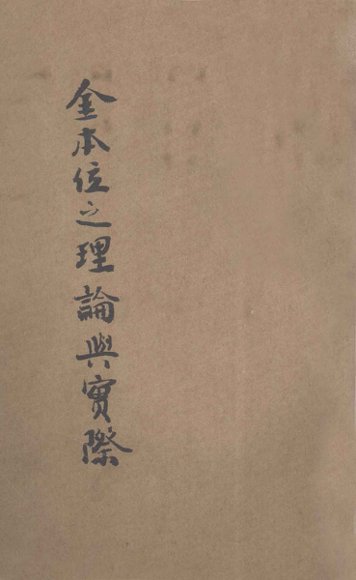 金本位之理論與實際